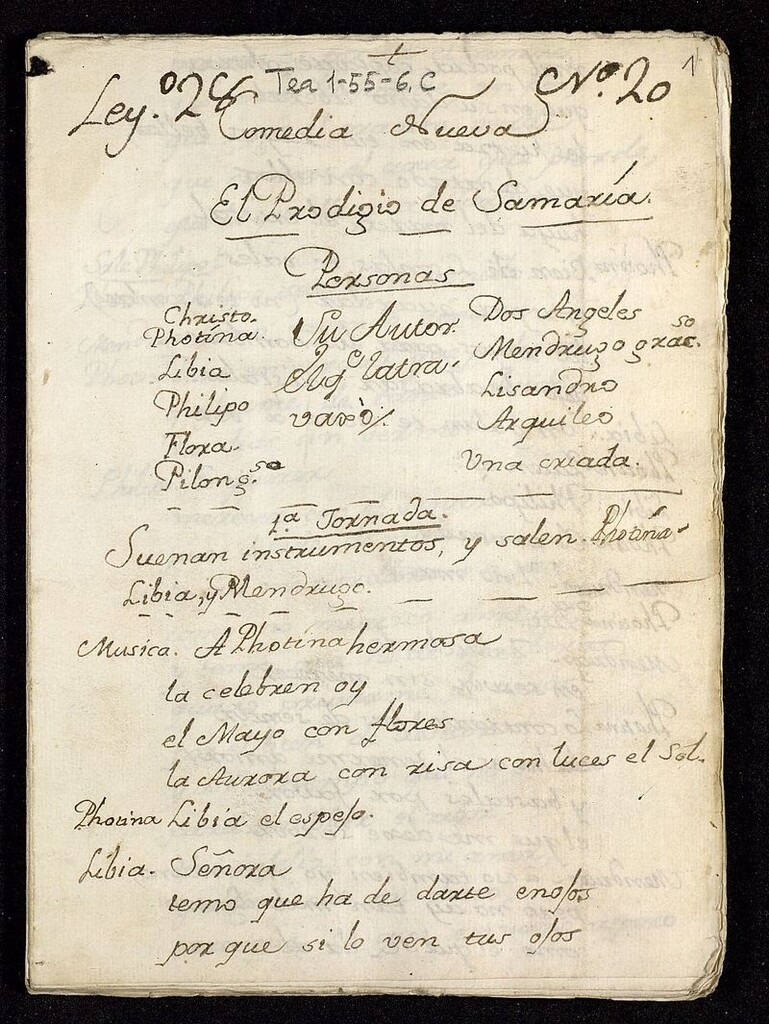 Tea 1-55-6, C
Ley.º 2
Nº. 20
1
Comedia Nueva
El Prodigio de Samaría.
Personas
Christo.
Photina.
Libia
Philipo
Flora.
Pilon g.so
Su Autor
vard
Dos Angeles
Mendrugo grac.so
Lisandro
Arquileo
Una criada.
1.a Jornada.
Suenan instrumentos, y salen Photina
Libia, y Mendrugo.
Musica. A Photina hermosa
la celebren oy
el Mayo con flores
la Aurora con risa con luces el Sol.
Photina Libia el espejo.
Libia. Señora
temo que ha de darte enojos
por que si lo ven tus ojos